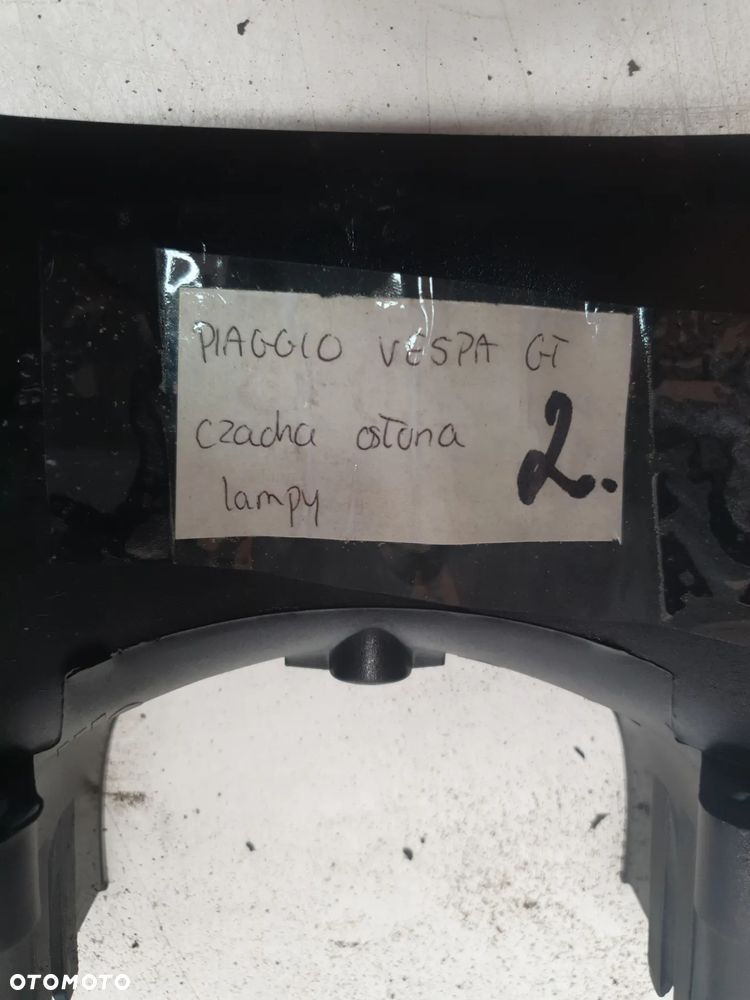 PIAGGIO VESPA GT
czacha osłona
lampy
2.
OTOMOTO